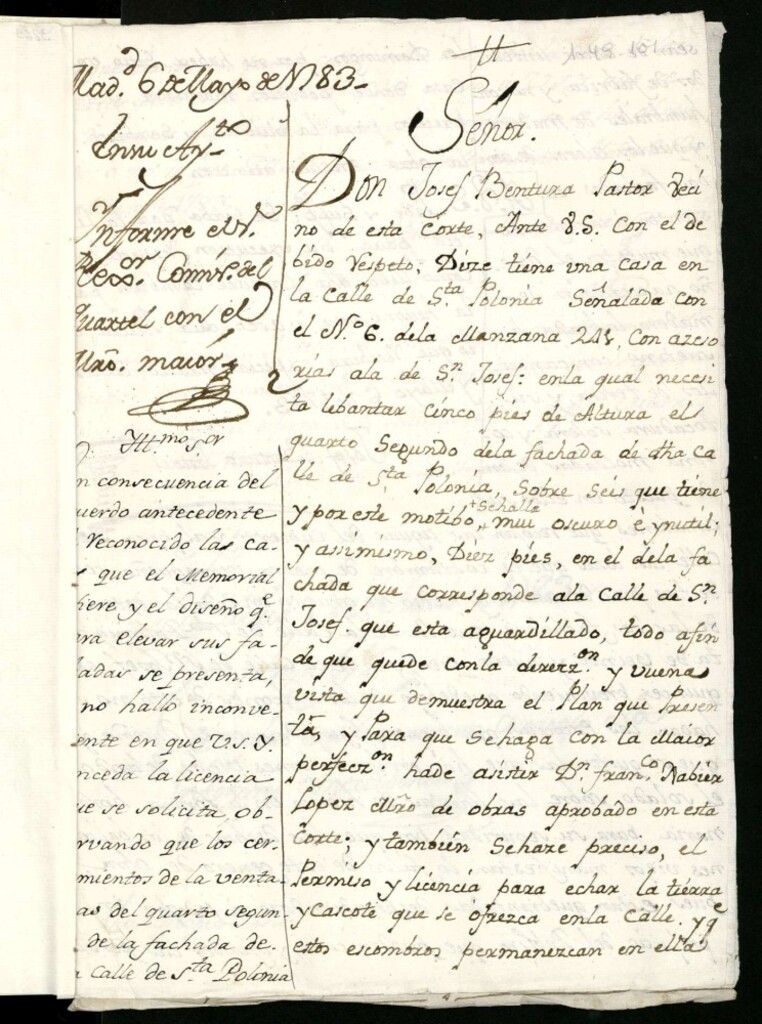 Mad.d 6 de Mayo de 1783.
En su Ay.to
Informe el S.r
Rex.or Comis.o del
Quartel con el
Mro. maior
Yll.mo S.or
n consecuencia del
uerdo antecedente
reconocido las ca-
s que el Memorial
fiere y el diseño q.e
ara elevar sus fa-
adas se presenta,
no hallo inconve-
ente en que V.S.Y.
nceda la licencia
ue se solicita, ob-
rvando que los cer-
mientos de la venta-
as del quarto segun-
de la fachada de
a Calle de S.ta Polonia
Señor.
Don Josef Bentura Pastor veci
no de esta Corte, Ante V.S. Con el de
bido respeto; Dize tiene una casa en
la Calle de S.ta Polonia Señalada con
el N.o 6. dela Manzana 248, Con azeso
rias ala de S.n Josef: enla qual necesi
ta lebantar Cinco pies de Altura el
quarto Segundo dela fachada de dha Ca
lle de S.ta Polonia, Sobre Seis que tiene
y por este motibo, + Sehalla mui oscuro è ynutil;
y assimismo, Diez pies, en el dela fa
chada que corresponde ala Calle de S.n
Josef. que esta aguardillado, todo afin
de que quede conla derezz.on y vuena
vista que demuestra el Plan que Presen
ta, y Para que Sehaga con la Maior
perfecz.on hade asistir D.n fran.co Xabier
Lopez Mro de obras aprobado en esta
Corte; y tambien Sehaze preciso, el
Permiso y licencia para echar la tierra
y Cascote que se ofrezca enla Calle. y q.e
estos escombros permanezcan en ella